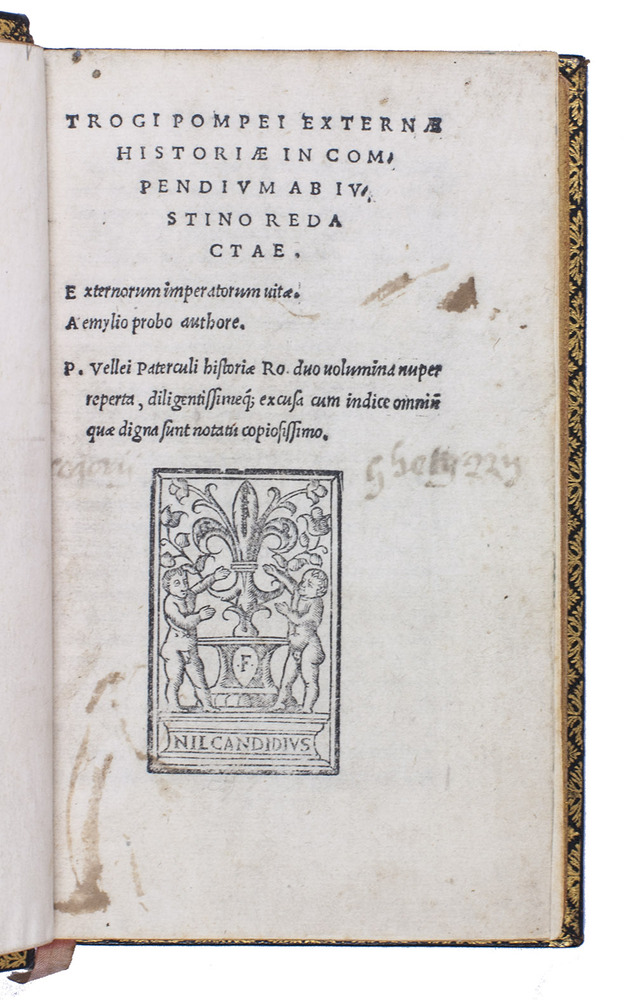 TROGI POMPEI EXTERNÆ
HISTORIÆ IN COM,
PENDIVM AB IV,
STINO REDA
CTAE.
Externorum imperatorum uitæ.
Aemylio probo authore.
P. Vellei Paterculi historiæ Ro. duo uolumina nuper
reperta, diligentissimeq; excusa cum indice omniū
quæ digna sunt notatu copiosissimo.
F
NIL CANDIDIVS